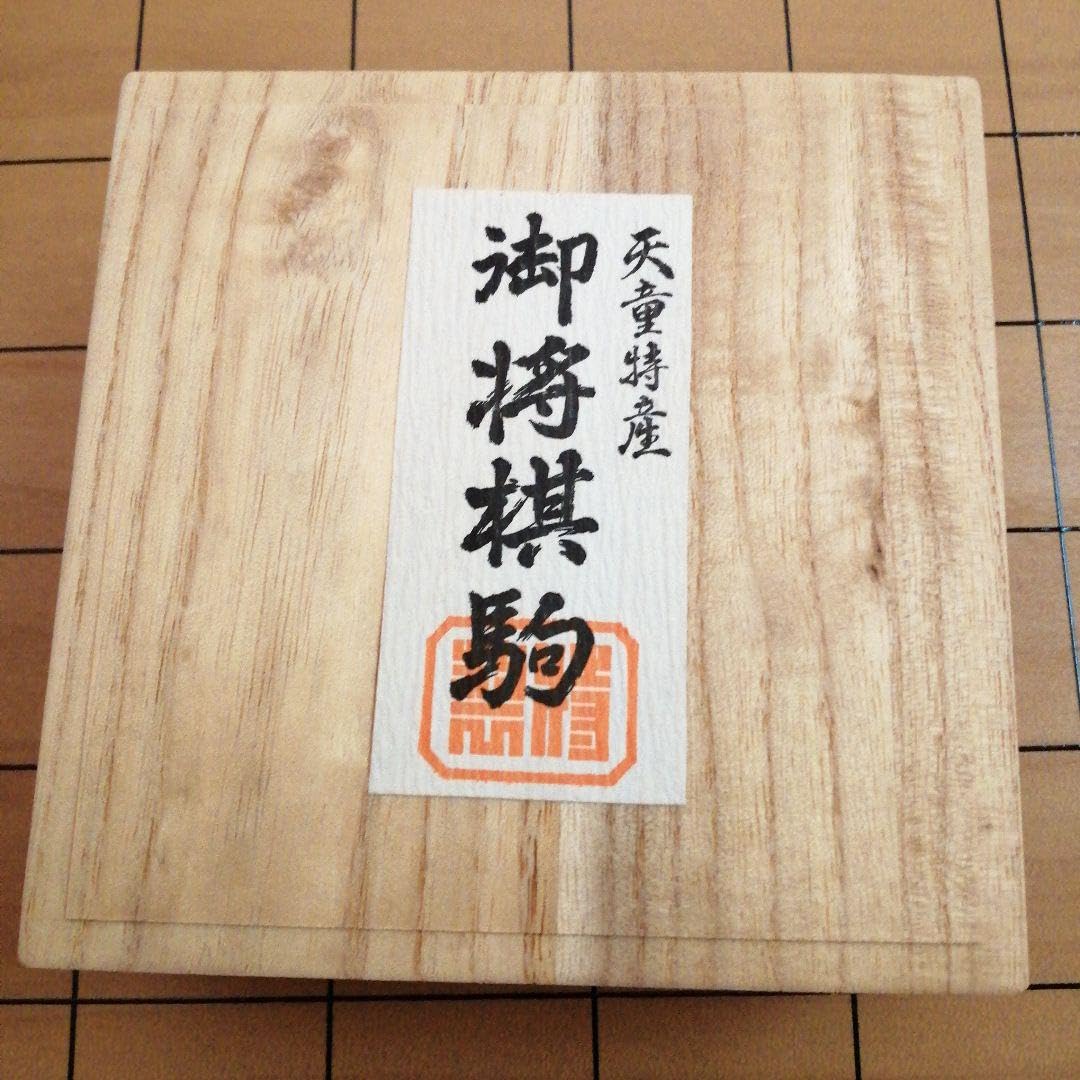 天童特産
御将棋駒